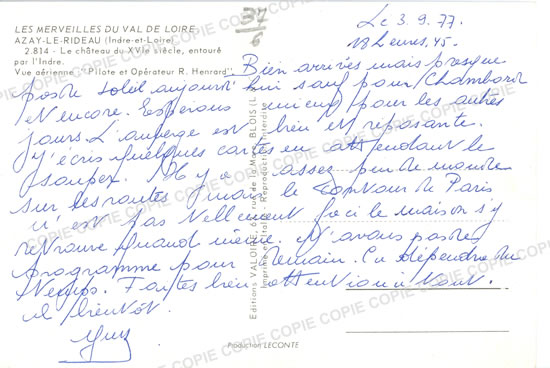 LES MERVEILLES DU VAL DE LOIRE
AZAY-LE-RIDEAU (Indre-et-Loire)
2.814 - Le château du XVIe siècle, entouré
par l'Indre.
Vue aérienne "Pilote et Opérateur R. Henrard"
Le 3.9.77.
18 heures 45.
Bien arrivés mais presque
pas de soleil aujourd'hui sauf pour Chambord
et encore. Espérons mieux pour les autres
jours. L'auberge est bien et reposante.
J'écris quelques cartes en attendant le
souper. Il y a assez peu de monde
sur les routes, mais le de Paris
n'est pas tellement la maison s'y
retrouve quand même. N'avons pas de
programme pour demain. Ça dépendra du
temps. Faites bien attention à tout.
A bientôt.
Editions VALOIRE, rue de la BLOIS
Imprimé en Italie - Reproduction interdite
Production LECONTE
COPIE COPIE COPIE COPIE COPIE COPIE